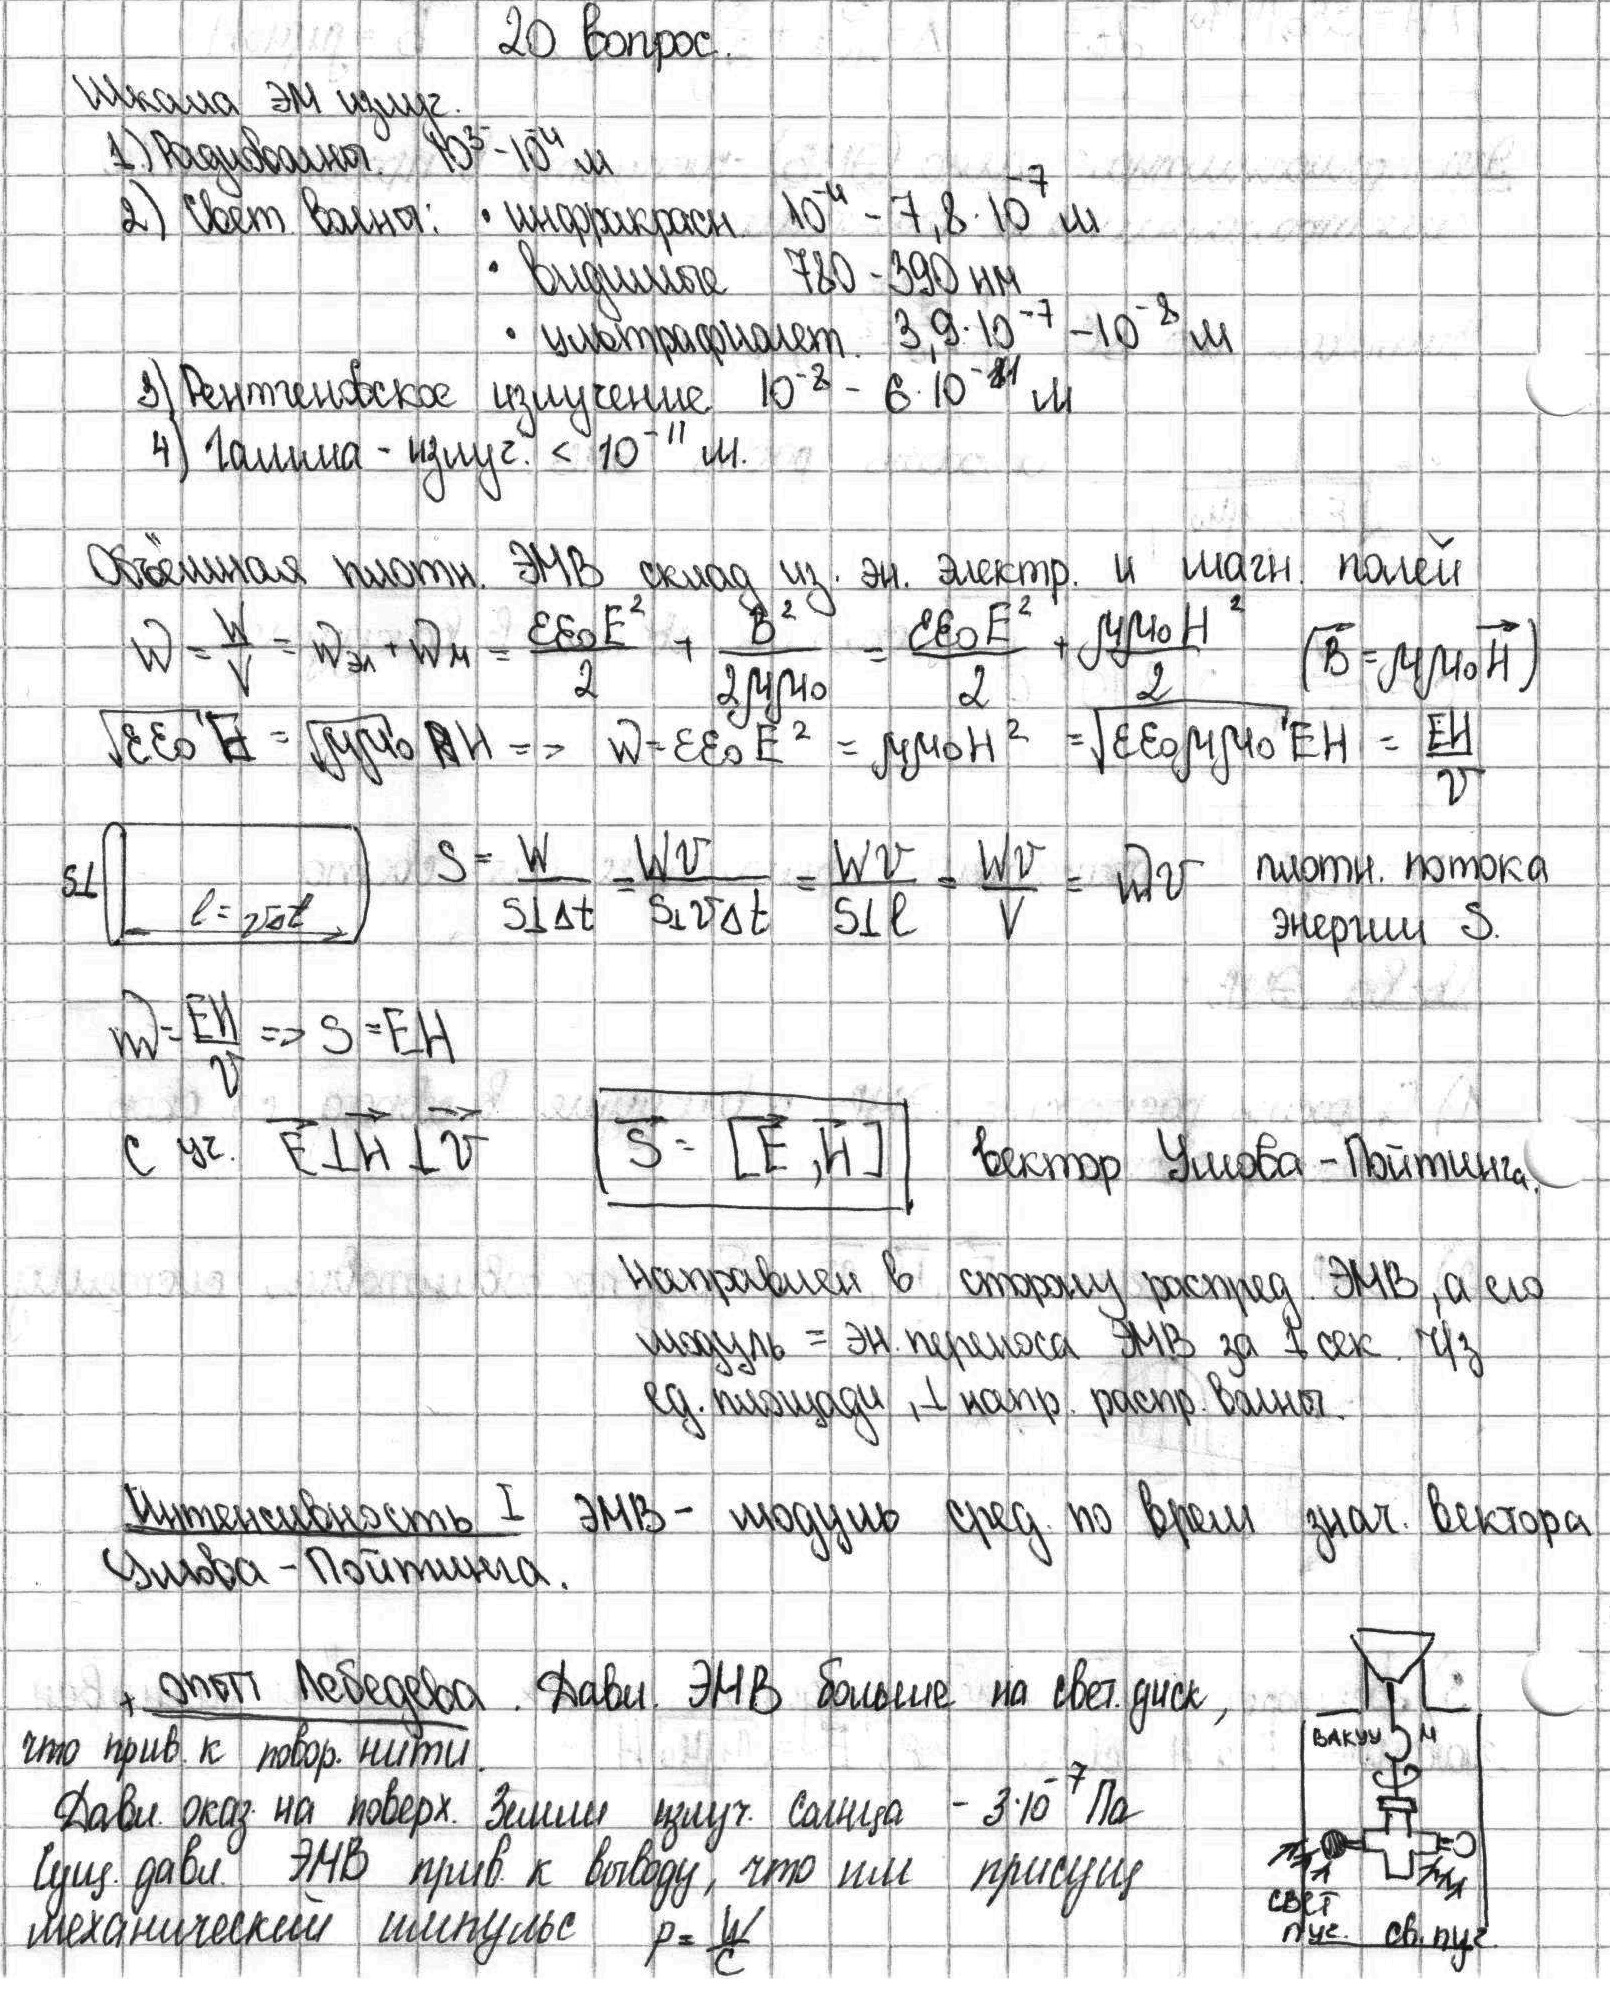 20 вопрос.
Шкала ЭМ излуч.
1) Радиоволны. 10³ - 10⁻⁴ м
2) Свет. волны: • инфракрасн. 10⁻⁴ - 7,8·10⁻⁷ м
• видимые 780 - 390 нм
• ультрафиолет. 3,9·10⁻⁷ - 10⁻⁸ м
3) Рентгеновское излучение 10⁻⁸ - 6·10⁻¹¹ м
4) Гамма - излуч. < 10⁻¹¹ м.
Объёмная плотн. ЭМВ склад из. эн. электр. и магн. полей
w = W/V = wэл + wм = εε₀E²/2 + B²/2μμ₀ = εε₀E²/2 + μμ₀H²/2 (B⃗ = μμ₀H⃗)
√εε₀ E = √μμ₀ H => w = εε₀E² = μμ₀H² = √εε₀μμ₀ EH = EH/v
S⊥ l = vΔt S = W/S⊥Δt = Wv/S⊥vΔt = Wv/S⊥l = Wv/V = wv плотн. потока
энергии S.
w = EH/v => S = EH
с уч. E⃗ ⊥ H⃗ ⊥ v⃗ S⃗ = [E⃗, H⃗] вектор Умова - Пойтинга.
направлен в сторону распред. ЭМВ, а его
модуль = эн. переноса ЭМВ за 1 сек. ч/з
ед. площади, ⊥ напр. распр. волны.
Интенсивность I ЭМВ - модуль сред. по врем знач. вектора
Умова - Пойтинга.
+ опыт Лебедева. Давл. ЭМВ больше на свет. диск,
что прив. к повор. нити.
Давл. оказ. на поверх. Земли излуч. солнца - 3·10⁻⁷ Па
Сущ. давл. ЭМВ прив. к выводу, что им присущ
механический импульс p = W/c
вакуум
свет
пуч. св. пуч.